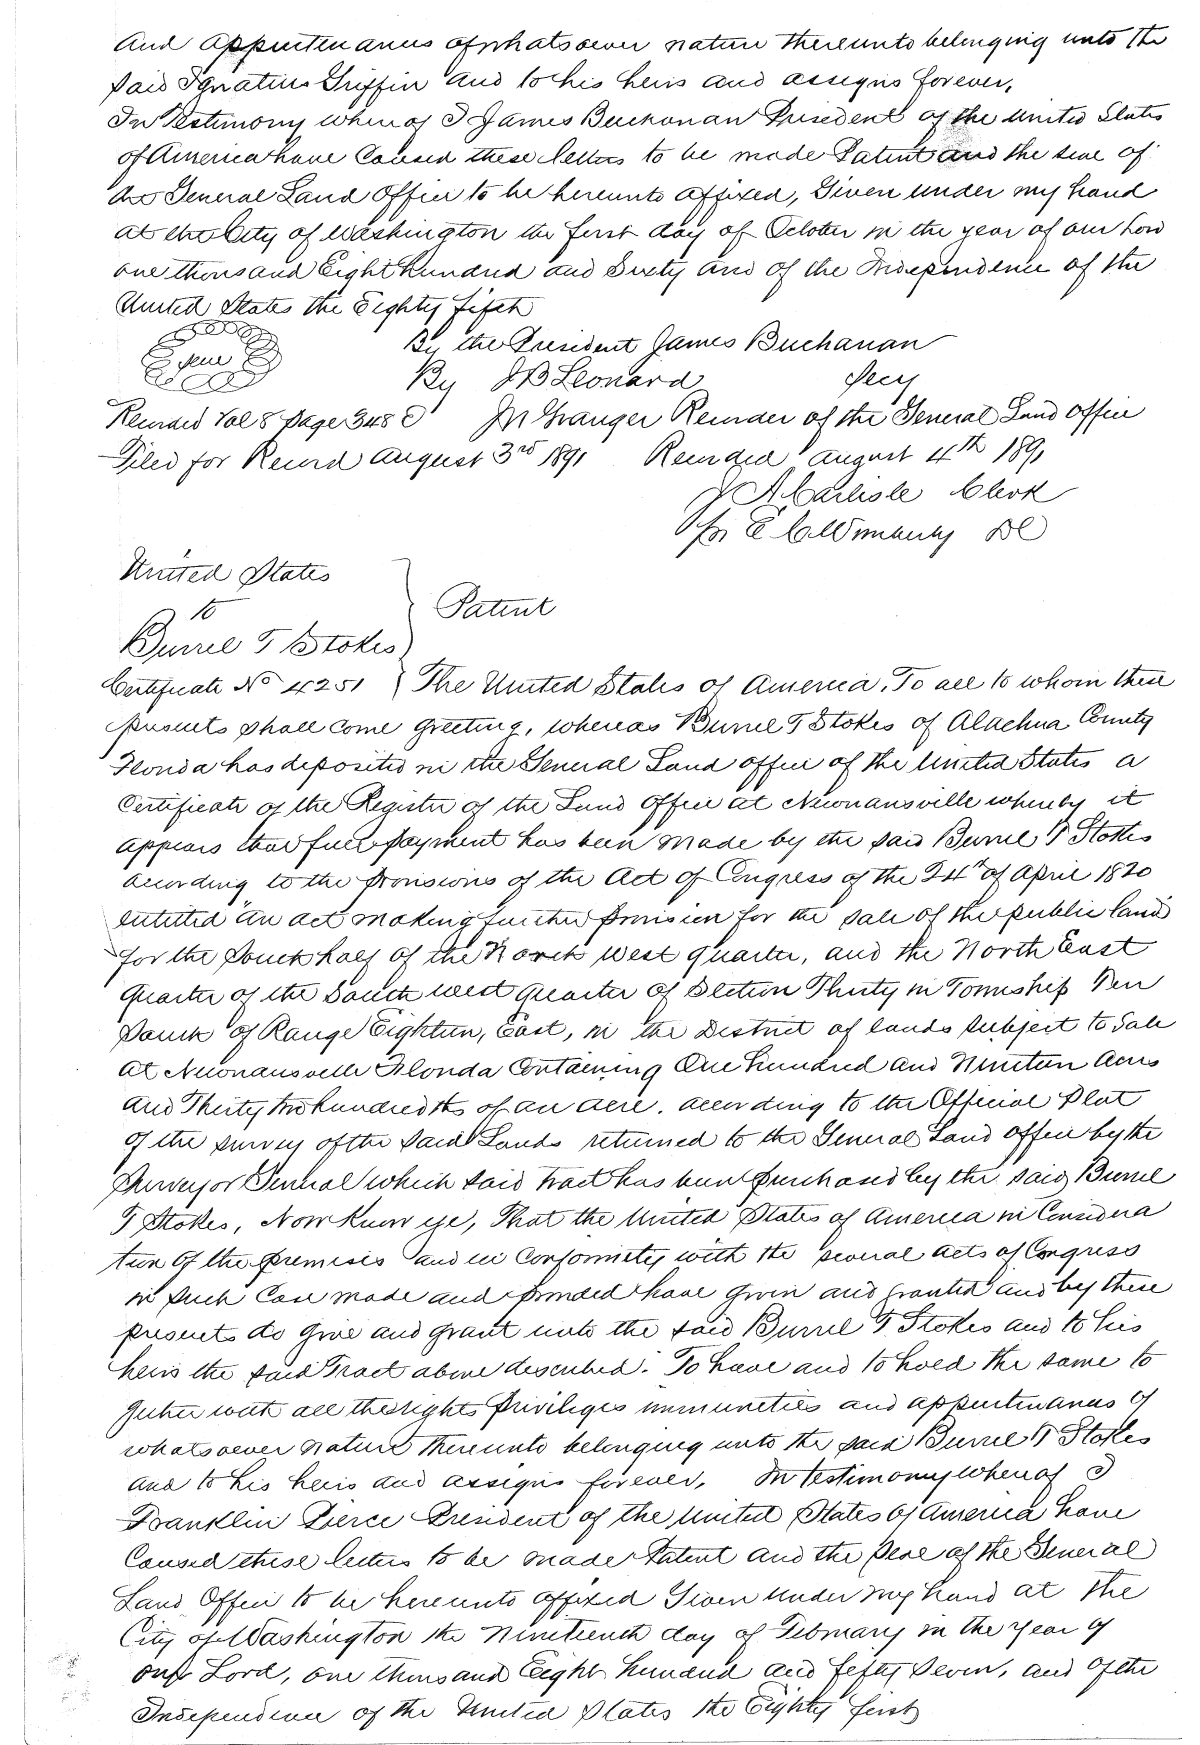 And appurtenances of whatsoever nature thereunto belonging unto the
said Ignatius Griffin and to his heirs and assigns forever,
In Testimony whereof I James Buchanan President of the United States
of America have Caused these letters to be made Patent and the seal of
the General Land Office to be hereunto affixed, Given under my hand
at the City of Washington the first day of October in the year of our Lord
one thousand Eight hundred and Sixty and of the Independence of the
United States the Eighty fifth
Seal
By the President James Buchanan
By J B Leonard Secy
Recorded Vol 8 Page 348 J N Granger Recorder of the General Land Office
Filed for Record August 3rd 1891 Recorded August 4th 1891
J A Carlisle Clerk
Pr E C Wimberly DC
United States
to
Burrel T Stokes
Patent
Certificate No 4251 } The United States of America, To all to whom these
presents shall come Greeting, whereas Burrel T Stokes of Alachua County
Florida has deposited in the General Land office of the United States a
Certificate of the Register of the Land Office at Newnansville whereby it
appears that full payment has been made by the said Burrel T Stokes
according to the provisions of the Act of Congress of the 24th of April 1820
entitled "An act making further provision for the sale of the public lands
for the South half of the North West quarter, and the North East
quarter of the South west quarter of Section Thirty in Township Ten
South of Range Eighteen, East, in the District of lands subject to Sale
at Newnansville Florida Containing One hundred and Nineteen Acres
And Thirty two hundredths of an acre. according to the Official Plat
of the survey of the said Lands returned to the General Land office by the
Surveyor General which said tract has been purchased by the said Burrel
T Stokes, Now know ye, That the United States of America in Considera
tion Of the premises and in Conformity with the several acts of Congress
in such Case made and provided have given and granted and by these
presents do give and grant unto the said Burrel T Stokes and to his
heirs the said Tract above described. To have and to hold the same to
gether with all the rights privileges immunities and appurtenances of
whatsoever nature thereunto belonging unto the said Burrel T Stokes
and to his heirs and assigns forever, In testimony whereof I
Franklin Pierce President of the United States of America have
Caused these letters to be made Patent and the seal of the General
Land Office to be hereunto affixed Given under my hand at the
City of Washington the nineteenth day of February in the year of
our Lord, one thousand Eight hundred and fifty seven, and of the
Independence of the United States the Eighty first